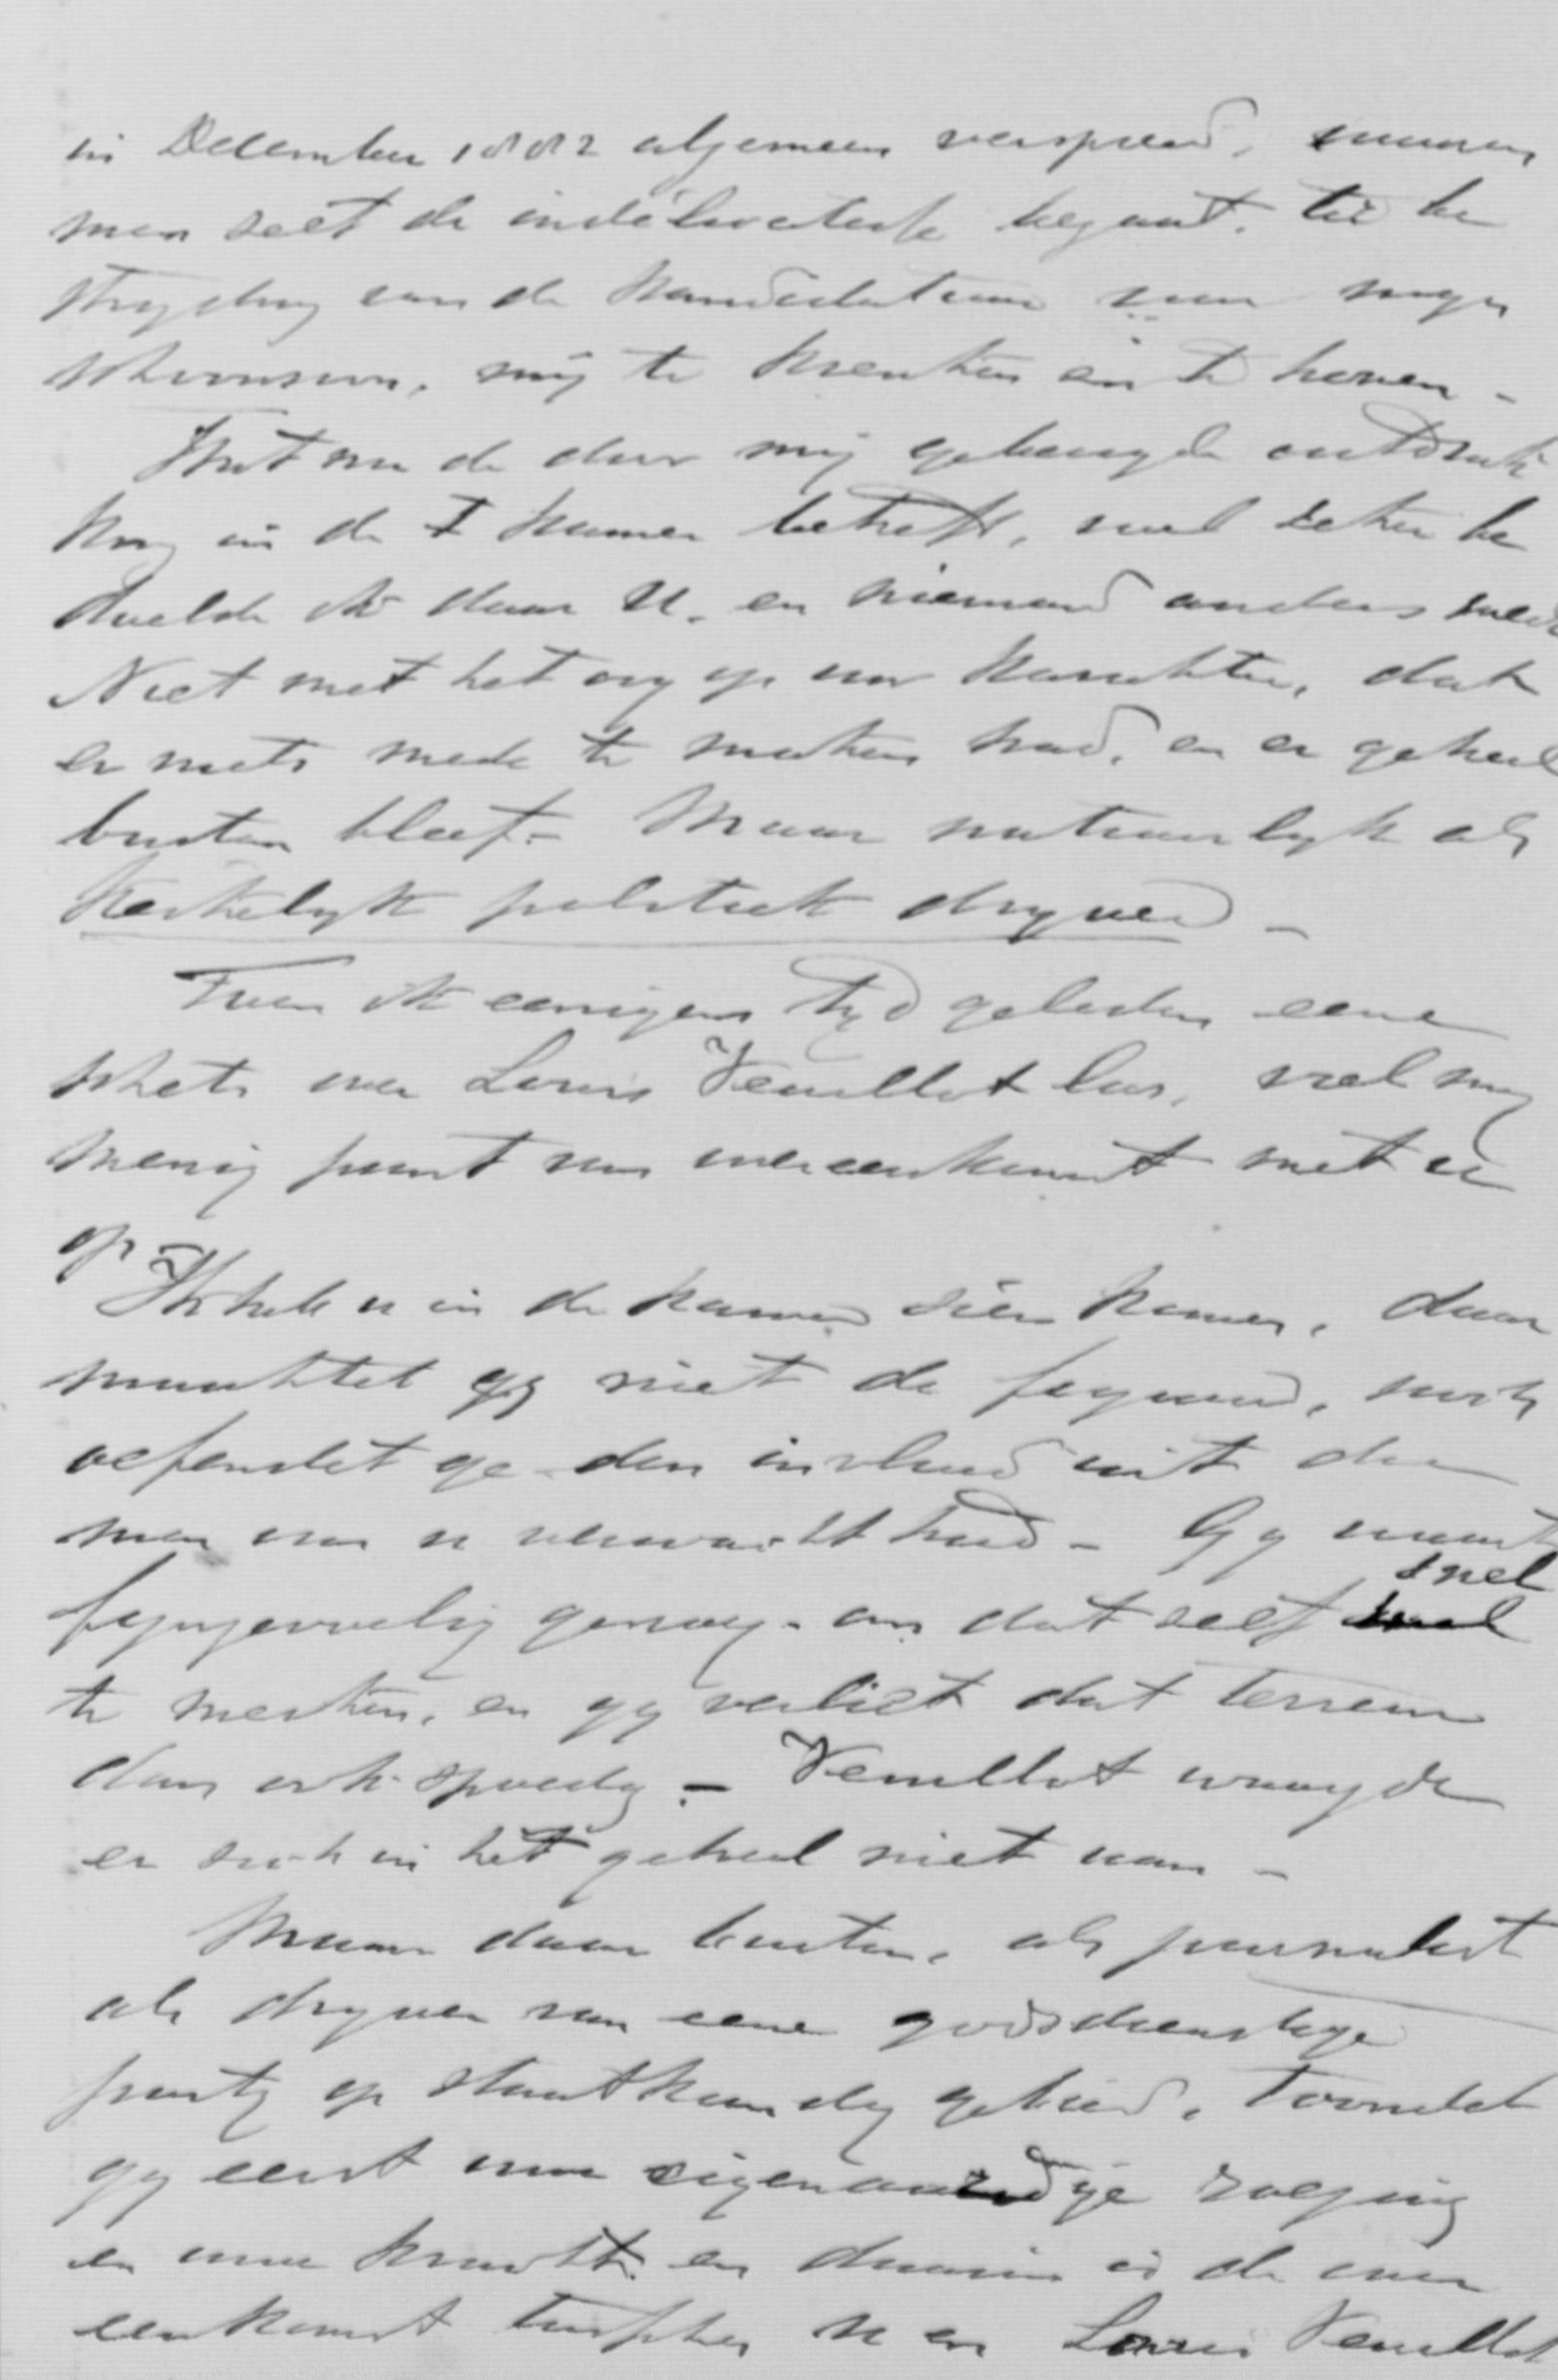 in December 1882 algemeen verspreid, waarin
men zelf de indélicatesse begaat, ter be
stryding van de Kandidatuur van myn
schoonzoon, mij te krenken en te honen –
Wat nu de door mij gebezigde uitdruk
king in de I Kamer betreft, wel zeker be
doelde ik daar U. en niemand anders mede
Niet met het oog op uw karakter, dat
er niets mede te maken had, en er geheel
buiten bleef – Maar natuurlyk als
Kerkelyk politiek dryver –
Toen ik eenigen tyd geleden eene
schets over Louis Veuillot las, viel my
menig punt van overeenkomst met u
op
Ik heb u in de Kamer zien komen, daar
maaktet gy niet de figuur, noch
oefendet ge den invloed uit dien
men van u verwacht had – Gy waart
fyngevoelig genoeg om dat zelf snel
te merken, en gy verliet dat terrein
dan ook spoedig – Veuillot waagde
er zich in het geheel niet aan –
Maar daar buiten, als journalist
als dryver van eene godsdienstige
party op staatkundig gebied, toondet
gy eerst uwe eigenaardige roeping
en uwe kracht en daarin is de over
eenkomst tusschen U en Louis Veuillot